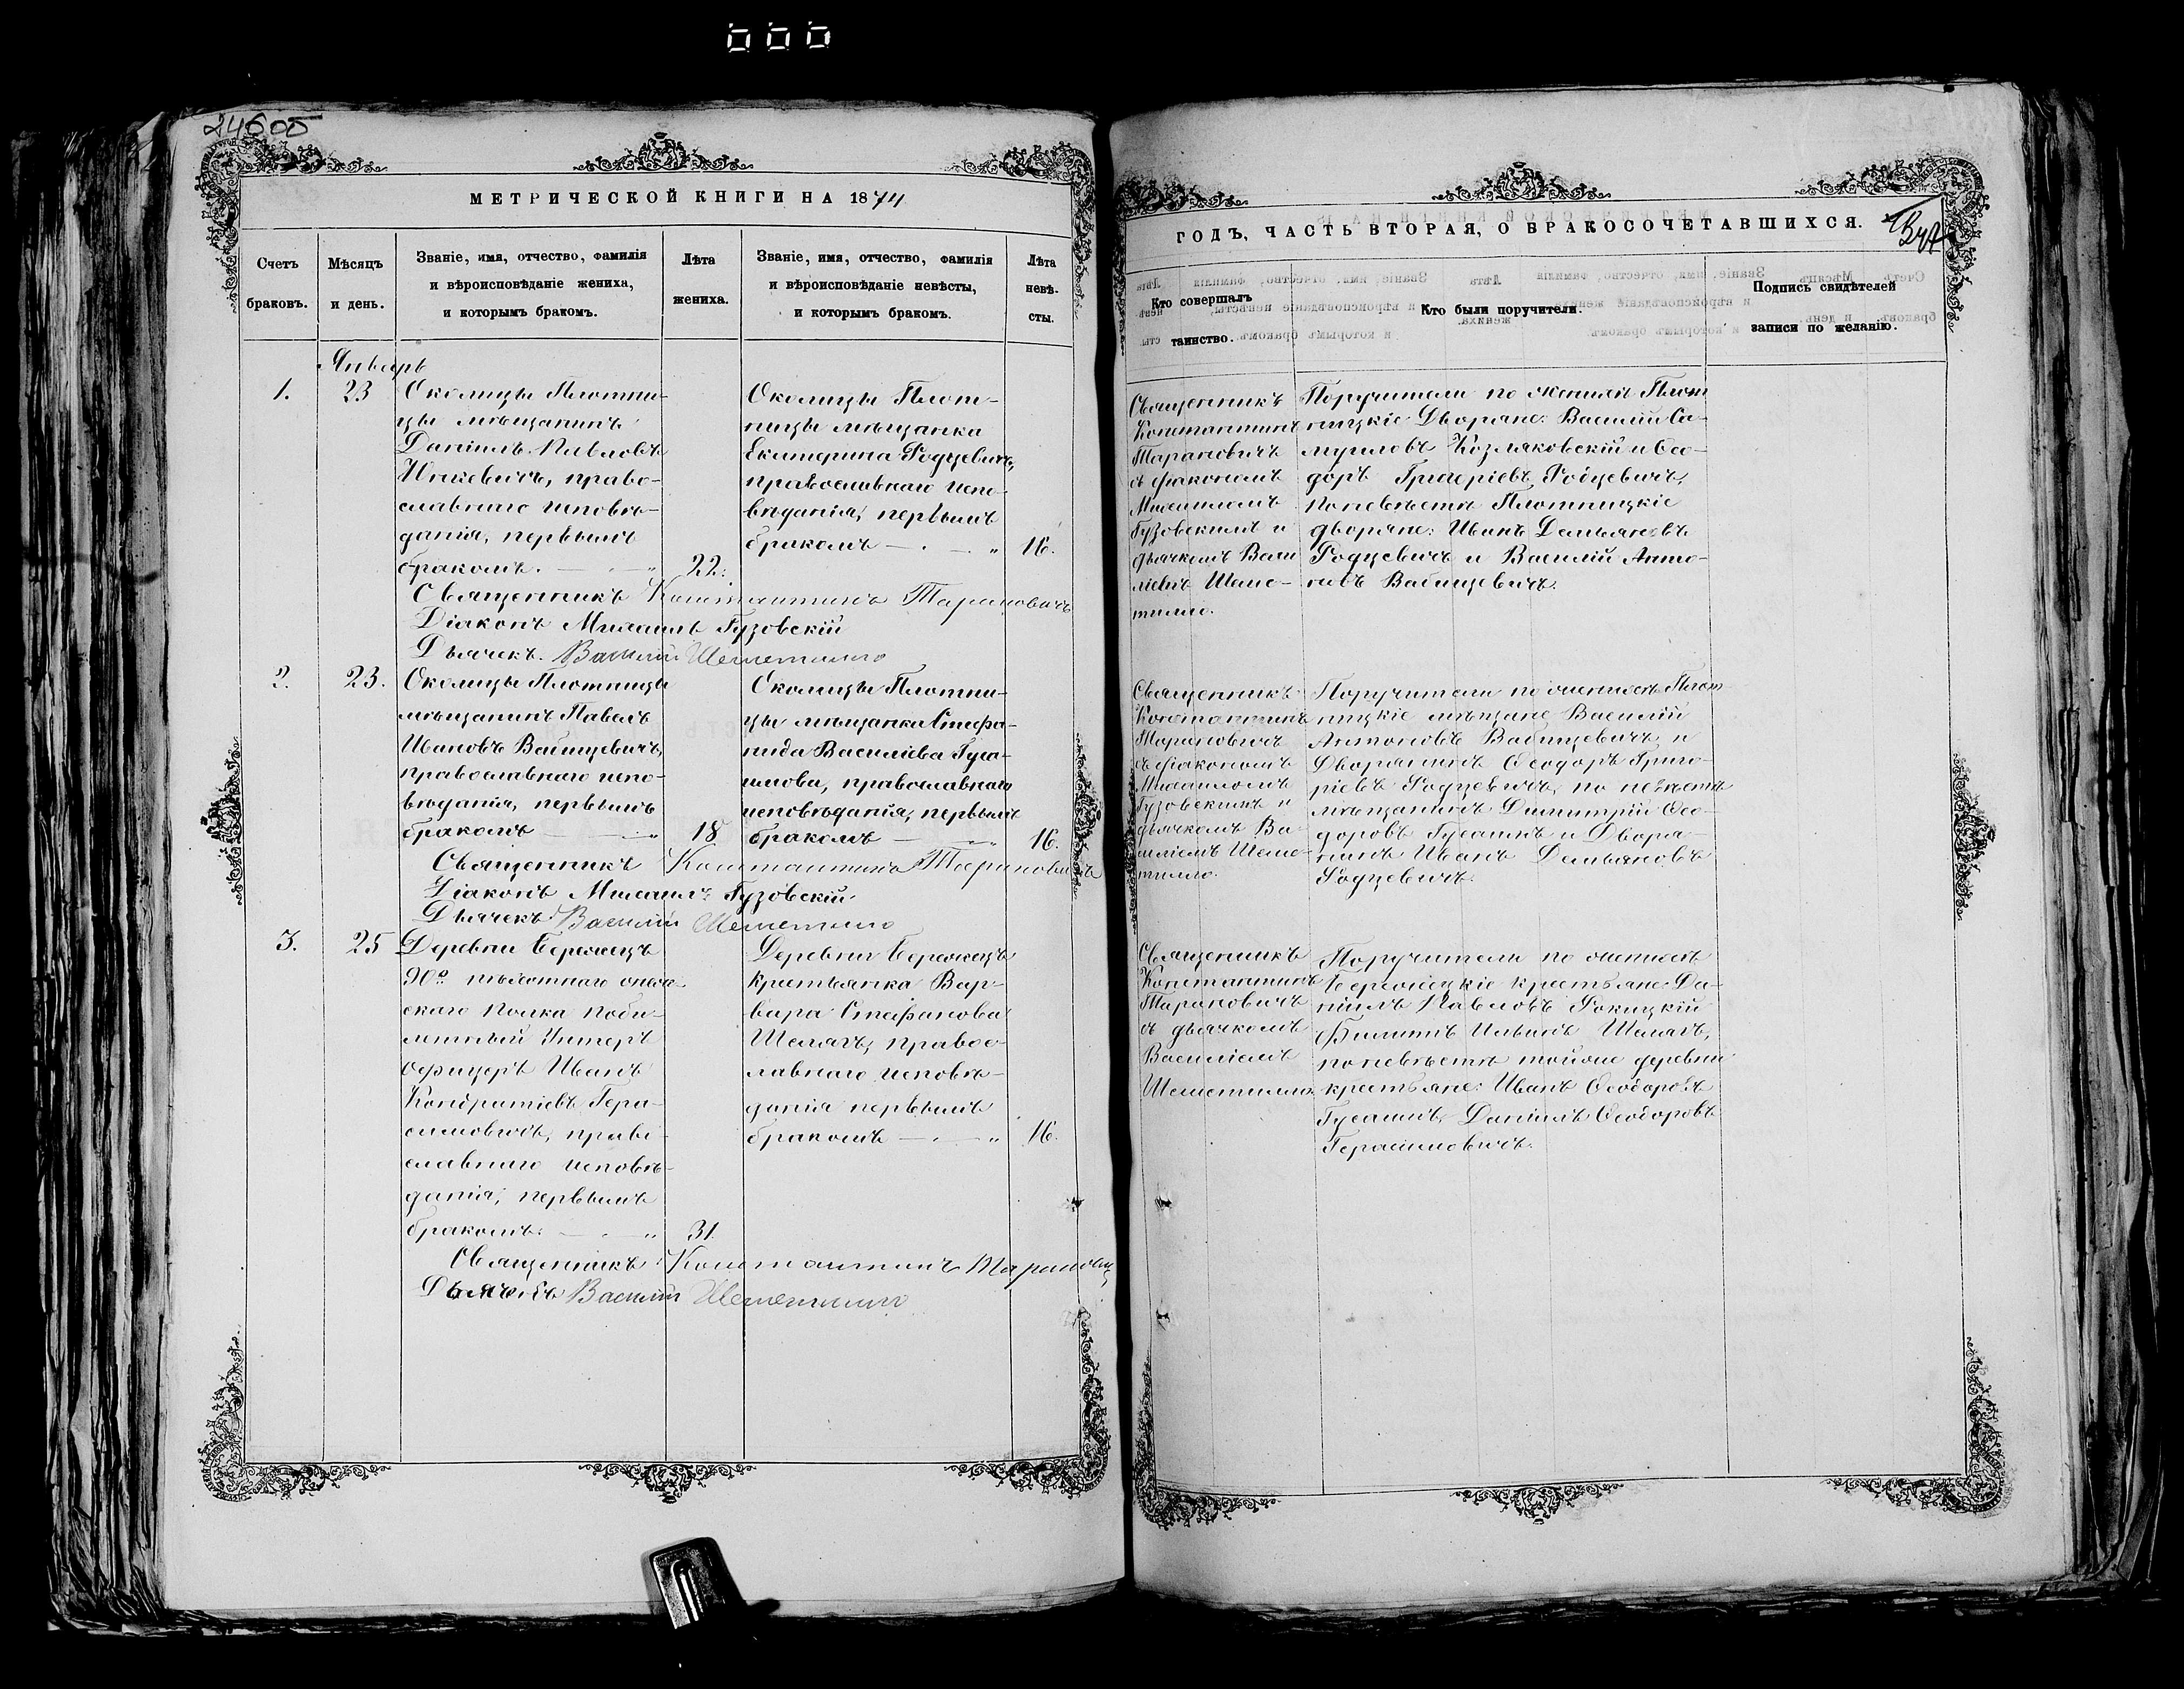 24605
МЕТРИЧЕСКОЙ КНИГИ НА 1874
Счетъ браковъ.
Мѣсяцъ и день.
Званіе, имя, отчество, фамилія
и вѣроисповѣданіе жениха,
и которымъ бракомъ.
Лѣта жениха.
Званіе, имя, отчество, фамилія
и вѣроисповѣданіе невѣсты,
и которымъ бракомъ.
Лѣта невѣ-
сты.
Январь
1.
23
Околицы Плотни-
цы мѣщанинъ
Даніилъ Павловъ
право-
славнаго исповѣ-
данія, первымъ
бракомъ.
22.
Околицы Плот-
ницы мѣщанка
Екатерина Родцевичъ,
православнаго испо-
вѣданія, первымъ
бракомъ
16.
Священникъ Константинъ Тарановичъ
Діаконъ Михаилъ Гузовскій
Дьячекъ Василій Шеметилло
2.
23.
Околицы Плотницы
мѣщанинъ Павелъ
Ивановъ Вабищевичъ,
православнаго испо-
вѣданія, первымъ
бракомъ
18
Околицы Плотни-
цы мѣщанка Стефа-
нида Василіева
православнаго
исповѣданія, первымъ
бракомъ
16.
Священникъ Константинъ Тарановичъ
Діаконъ Михаилъ Гузовскій
Дьячекъ Василій Шеметилло
3.
25
Деревни Бережецъ
90го пѣхотнаго
скаго полка
Унтеръ
офицеръ Иванъ
Кондратіевъ Гера-
симовичъ, право-
славнаго исповѣ-
данія, первымъ
бракомъ.
31.
Деревни Бережецъ
крестьянка Вар-
вара Стефанова
Шелягъ, правос-
лавнаго исповѣ-
данія первымъ
бракомъ
16.
Священникъ Константинъ Тарановичъ
Дьячекъ Василій Шеметилло
ГОДЪ, ЧАСТЬ ВТОРАЯ, О БРАКОСОЧЕТАВШИХСЯ.
Кто совершалъ
таинство.
Кто были поручители.
Подпись свидѣтелей
записи по желанію.
Священникъ
Константинъ
Тарановичъ
съ діакономъ
Михаиломъ
Гузовскимъ и
дьячкомъ Васи
ліемъ Шеме-
тилло.
Поручители по женихѣ Плот
ницкіе Дворяне: Василій Са-
муиловъ Козляковскій и Ѳео-
доръ Григоріевъ Родцевичъ,
по невѣстѣ Плотницкіе
дворяне: Иванъ Демьяновъ
Родцевичъ и Василій Анто-
новъ Вабищевичъ.
Священникъ
Константинъ
Тарановичъ
съ діакономъ
Михаиломъ
Гузовскимъ и
дьячкомъ Ва-
силіемъ Шеме-
тилло.
Поручители по женихѣ Плот
ницкіе мѣщане Василій
Антоновъ Вабищевичъ и
Дворянинъ Ѳеодоръ Григо-
ріевъ Родцевичъ, по невѣстѣ
мѣщанинъ Димитрій Ѳео-
доровъ и Дворя-
нинъ Иванъ Демьяновъ
Родцевичъ.
Священникъ
Константинъ
Тарановичъ
съ дьячкомъ
Василіемъ
Шеметилло.
Поручители по женихѣ
Бережецкіе крестьяне Да-
ніилъ Павловъ Рокицкій
Филиппъ Ильинъ Шелягъ,
по невѣстѣ тойже деревни
крестьяне: Иванъ Ѳеодоровъ
Даніилъ Ѳеодоровъ
Герасимовичъ.